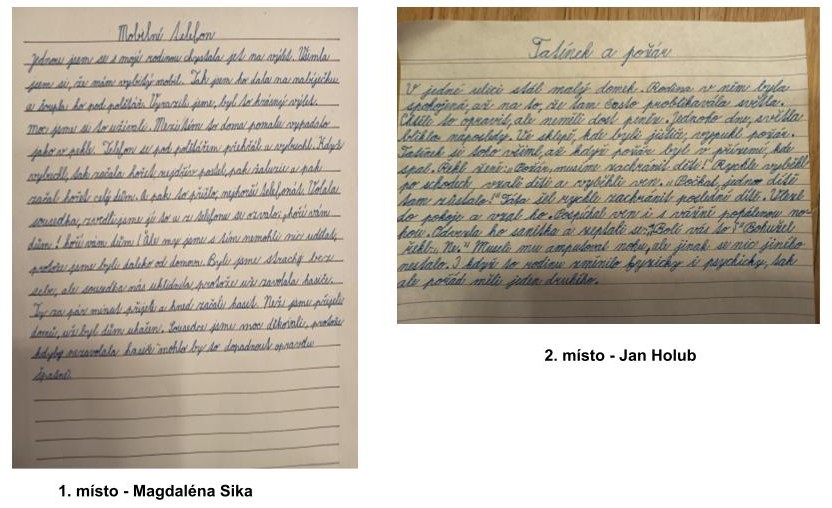 Mobilní telefon
Jednou jsem se s mojí rodinou chystala jet na výlet. Všimla
jsem si, že mám vybitý mobil. Tak jsem ho dala na nabíječku
a šoupla ho pod polštář. Vyrazili jsme, byl to krásný výlet.
Moc jsme si to užívali. Mezitím to doma pomalu vypadalo
jako v pekle. Telefon se pod polštářem přehřál a vybuchl. Když
vybuchl, tak začala hořet nejdřív postel, pak žaluzie a pak
začal hořet celý dům. A pak to přišlo, nejhorší telefonát. Volala
sousedka, zvedli jsme jí to a z telefonu se ozvalo: „hoří vám
dům! hoří vám dům! Ale my jsme s tím nemohli nic udělat,
protože jsme byli daleko od domova. Byli jsme strachy bez
sebe, ale sousedka nás uklidnila, protože už zavolala hasiče.
Ty za pár minut přijeli a hned začali hasit. Než jsme přijeli
domů, už byl dům uhašen. Sousedce jsme moc děkovali, protože
kdyby nezavolala hasiče mohlo by to dopadnout opravdu
špatně.
1. místo - Magdaléna Sika
Tatínek a požár
V jedné ulici stál malý domek. Rodina v něm byla
spokojená, až na to, že tam často problikávala světla.
Chtěli to opravit, ale neměli dost peněz. Jednoho dne, světla
blikla naposledy. Ve sklepě, kde byli jističe, vypukl požár.
Tatínek si toho všiml, až když požár byl v přízemí, kde
spal. Řekl ženě: „Požár, musíme zachránit děti!" Rychle vyběhli
po schodech vzali děti a vyběhli ven. „Počkat, jedno dítě
tam zůstalo!" Táta šel rychle zachránit poslední dítě. Vlezl
do pokoje a vzal ho. Dospíchal ven i s vážně popálenou no-
hou. Odvezla ho sanitka a zeptali se: „Bolí vás to?" Bohužel
řekl: „Ne." Museli mu amputovat nohu, ale jinak se nic jiného
nestalo. I když to rodinu změnilo fyzicky i psychicky, tak
ale pořád měli jeden druhého.
2. místo - Jan Holub